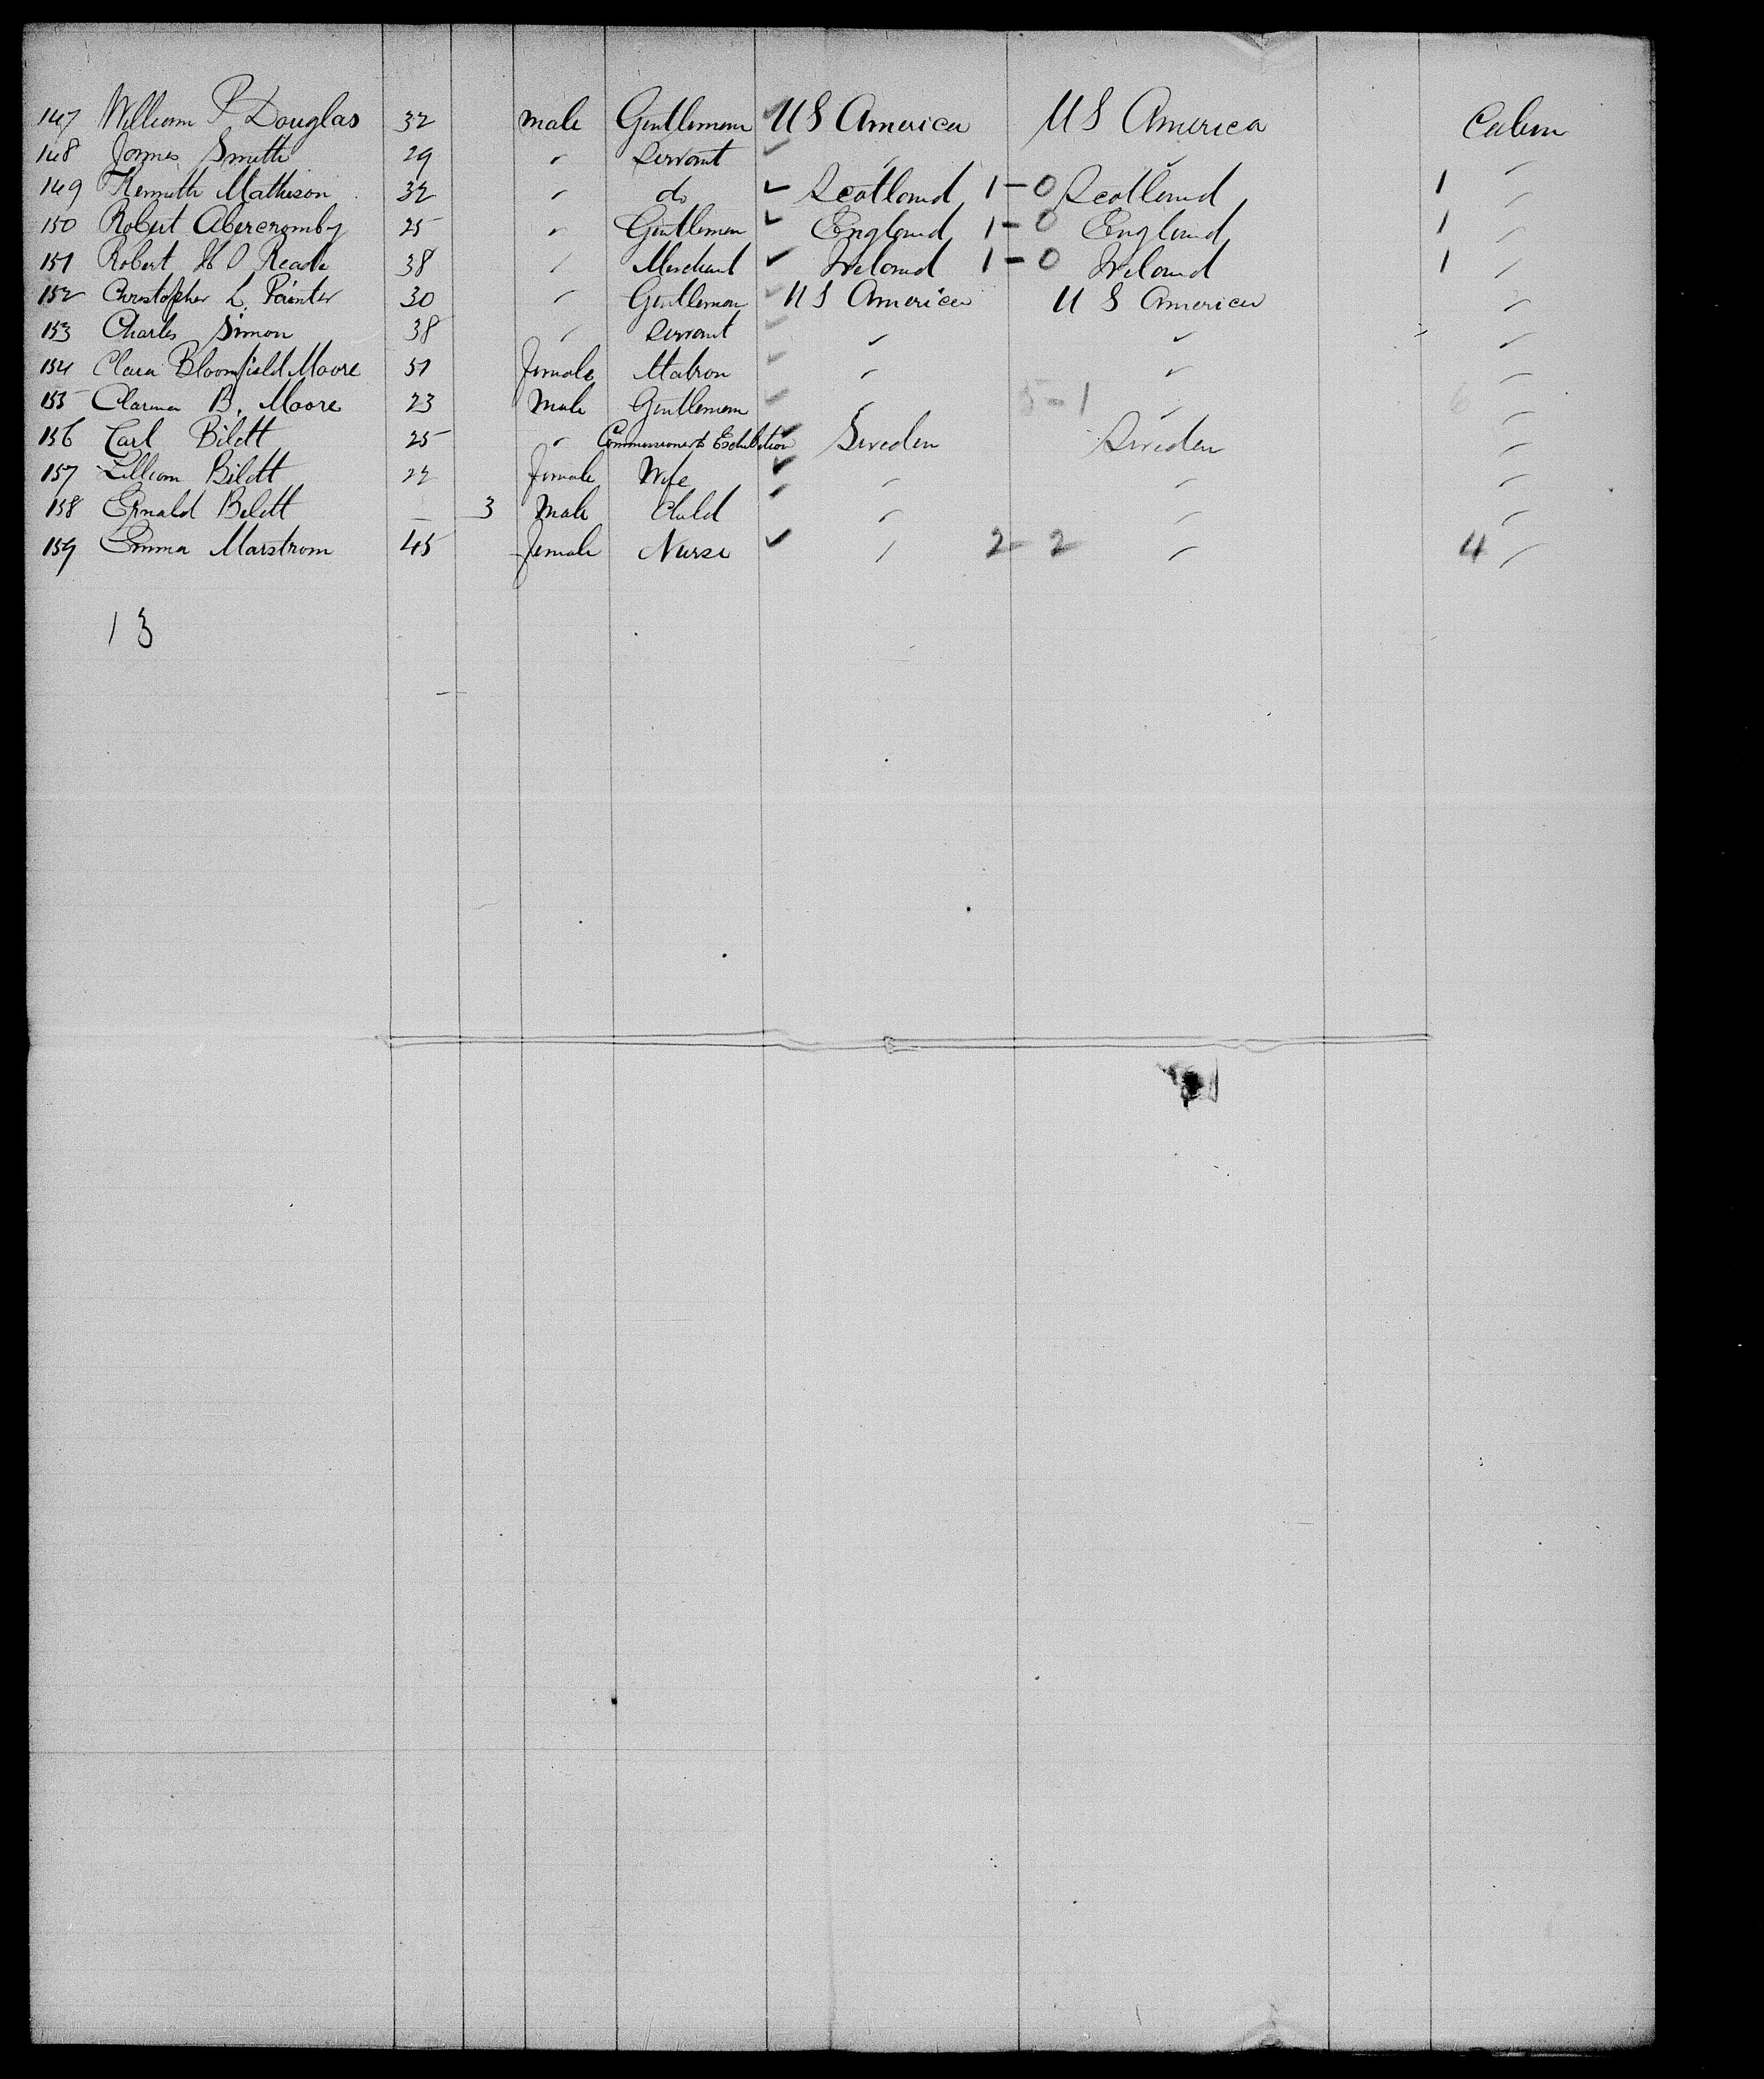 147 William P Douglas 32 male Gentleman US America US America Cabin
148 James Smith 29 " Servant " " "
149 Kenneth Mathison 32 " do Scotland 1-0 Scotland 1 "
150 Robert Abercromby 25 " Gentleman England 1-0 England 1 "
151 Robert H O Reade 38 " Merchant Ireland 1-0 Ireland 1 "
152 Christopher L. Painter 30 " Gentleman U S America U S America "
153 Charles Simon 38 " Servant " " "
154 Clara Bloomfield Moore 51 female Matron " " "
155 Clarence B. Moore 23 Male Gentleman " 5-1 " 6 "
156 Carl Bildt 25 " Commissioner to Exhibition Sweden Sweden "
157 Lilliam Bildt 22 female Wife " " "
158 Bildt — 3 Male Child " " "
159 Emma Marstrom 45 female Nurse " 2-2 " 4 "
13